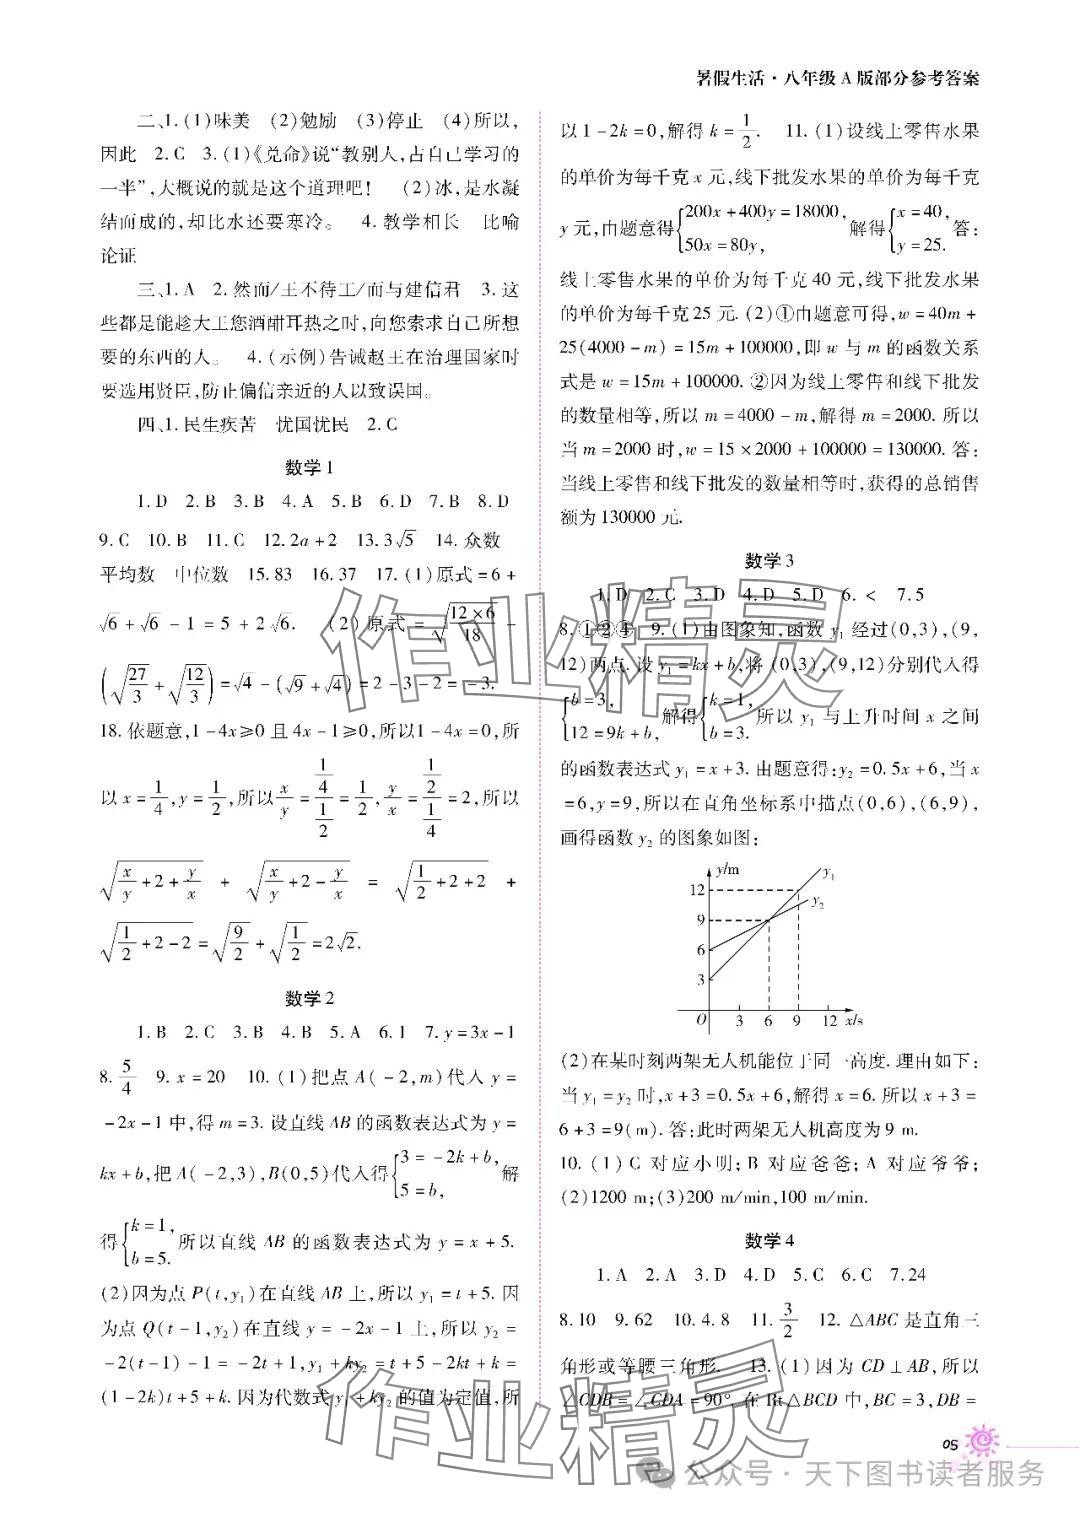 暑假生活·八年级 A 版部分参考答案
二、1. (1)味美 (2)勉励 (3)停止 (4)所以,
因此 2. C 3. (1)《兑命》说“教别人,占自己学习的
一半”,大概说的就是这个道理吧! (2)冰,是水凝
结而成的,却比水还要寒冷。 4. 教学相长 比喻
论证
三、1. A 2. 然而/王不待工/而与建信君 3. 这
些都是能趁大王您酒酣耳热之时,向您索求自己所想
要的东西的人。 4. (示例)告诫赵王在治理国家时
要选用贤臣,防止偏信亲近的人以致误国。
四、1. 民生疾苦 忧国忧民 2. C
数学 1
1. D 2. B 3. B 4. A 5. B 6. D 7. B 8. D
9. C 10. B 11. C 12. 2a+2 13. 3√5 14. 众数
平均数 中位数 15. 83 16. 37 17. (1)原式=6+
√6+√6-1=5+2√6. (2)原式=√(12×6/18)-
(√(27/3)+√(12/3))=√4-(√9+√4)=2-3-2=-3.
18. 依题意,1-4x≥0 且 4x-1≥0,所以1-4x=0,所
以 x=1/4,y=1/2,所以 x/y=(1/4)/(1/2)=1/2,y/x=(1/2)/(1/4)=2,所以
√(x/y+2+y/x) + √(x/y+2-y/x) = √(1/2+2+2) +
√(1/2+2-2)=√(9/2)+√(1/2)=2√2.
数学 2
1. B 2. C 3. B 4. B 5. A 6. 1 7. y=3x-1
8. 5/4 9. x=20 10. (1)把点 A(-2,m)代入 y=
-2x-1 中,得 m=3. 设直线 AB 的函数表达式为 y=
kx+b,把 A(-2,3),B(0,5)代入得{3=-2k+b, 5=b, 解
得{k=1, b=5. 所以直线 AB 的函数表达式为 y=x+5.
(2)因为点 P(t,y₁)在直线 AB 上,所以 y₁=t+5. 因
为点 Q(t-1,y₂)在直线 y=-2x-1 上,所以 y₂=
-2(t-1)-1=-2t+1,y₁+ky₂=t+5-2kt+k=
(1-2k)t+5+k. 因为代数式 y₁+ky₂的值为定值,所
以 1-2k=0,解得 k=1/2. 11. (1)设线上零售水果
的单价为每千克 x 元,线下批发水果的单价为每千克
y 元,由题意得{200x+400y=18000, 50x=80y, 解得{x=40, y=25. 答:
线上零售水果的单价为每千克 40 元,线下批发水果
的单价为每千克 25 元. (2)①由题意可得,w=40m+
25(4000-m)=15m+100000,即 w 与 m 的函数关系
式是 w=15m+100000. ②因为线上零售和线下批发
的数量相等,所以 m=4000-m,解得 m=2000. 所以
当 m=2000 时,w=15×2000+100000=130000. 答:
当线上零售和线下批发的数量相等时,获得的总销售
额为 130000 元.
数学 3
1. D 2. C 3. D 4. D 5. D 6. < 7. 5
8. ①②④ 9. (1)由图象知,函数 y₁ 经过(0,3),(9,
12)两点. 设 y₁=kx+b,将 (0,3),(9,12)分别代入得
{b=3, 12=9k+b, 解得{k=1, b=3. 所以 y₁ 与上升时间 x 之间
的函数表达式 y₁=x+3. 由题意得:y₂=0.5x+6,当 x
=6,y=9,所以在直角坐标系中描点(0,6),(6,9),
画得函数 y₂ 的图象如图:
y/m
y₁
12
y₂
9
6
3
O 3 6 9 12 x/s
(2)在某时刻两架无人机能位于同一高度. 理由如下:
当 y₁=y₂ 时,x+3=0.5x+6,解得 x=6. 所以 x+3=
6+3=9(m). 答:此时两架无人机高度为 9 m.
10. (1) C 对应小明; B 对应爸爸; A 对应爷爷;
(2)1200 m;(3)200 m/min,100 m/min.
数学 4
1. A 2. A 3. D 4. D 5. C 6. C 7. 24
8. 10 9. 62 10. 4.8 11. 3/2 12. △ABC 是直角三
角形或等腰三角形. 13. (1)因为 CD⊥AB,所以
∠CDB=∠CDA=90°. 在 Rt△BCD 中,BC=3,DB=
05
作业精灵
作业精灵
公众号·天下图书读者服务